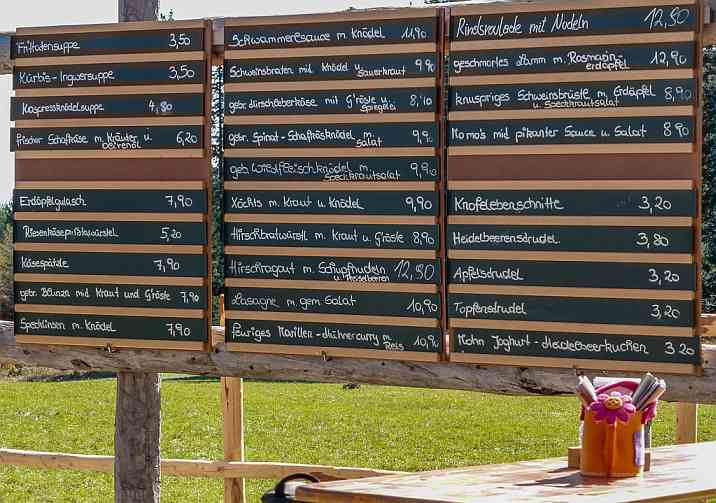 Frittatensuppe 3,50
Kürbis-Ingwersuppe 3,50
Kaspressknödelsuppe 4,80
frischer Schafkäse m. Kräuter u. Olivenöl 6,20
Erdäpfelgulasch 7,90
Riesenkäse 5,20
Käsespätzle 7,90
gebr. Blunza mid Kraut und G'röste 7,90
Specklinsen m. Knödel 7,90
Schwammerlsauce m. Knödel 11,90
Schweinsbraten mit Knödel u. Sauerkraut 9,90
gebr. Hirschleberkäse mit G'röste u. Spiegelei 8,10
gebr. Spinat-Schafkäsknödel m. Salat 9,90
geb. Wildfleischknödel m. Speckkrautsalat 9,90
Xöchts m. Kraut u. Knödel 9,90
Hirschbratwürstl m. Kraut u. G'röste 8,90
Hirschragout m. Schupfnudeln u. Preiselbeeren 12,50
Lasagne m. gem. Salat 10,90
feuriges Marillen-Hühnercurry m. Reis 10,90
Rindsroulade mit Nudeln 12,50
geschmortes Lamm m. Rosmarin-erdäpfel 12,90
knuspriges Schweinsbrüstl m. Erdäpfel u. Speckkrautsalat 8,90
Momo's mid pikanter Sauce u. Salat 8,90
Knofelebenschnitte 3,20
Heidelbeerensdrudel 3,80
Apfelsdrudel 3,20
Topfensdrudel 3,20
Mohn Joghurt-Heidelbeerkuchen 3,20